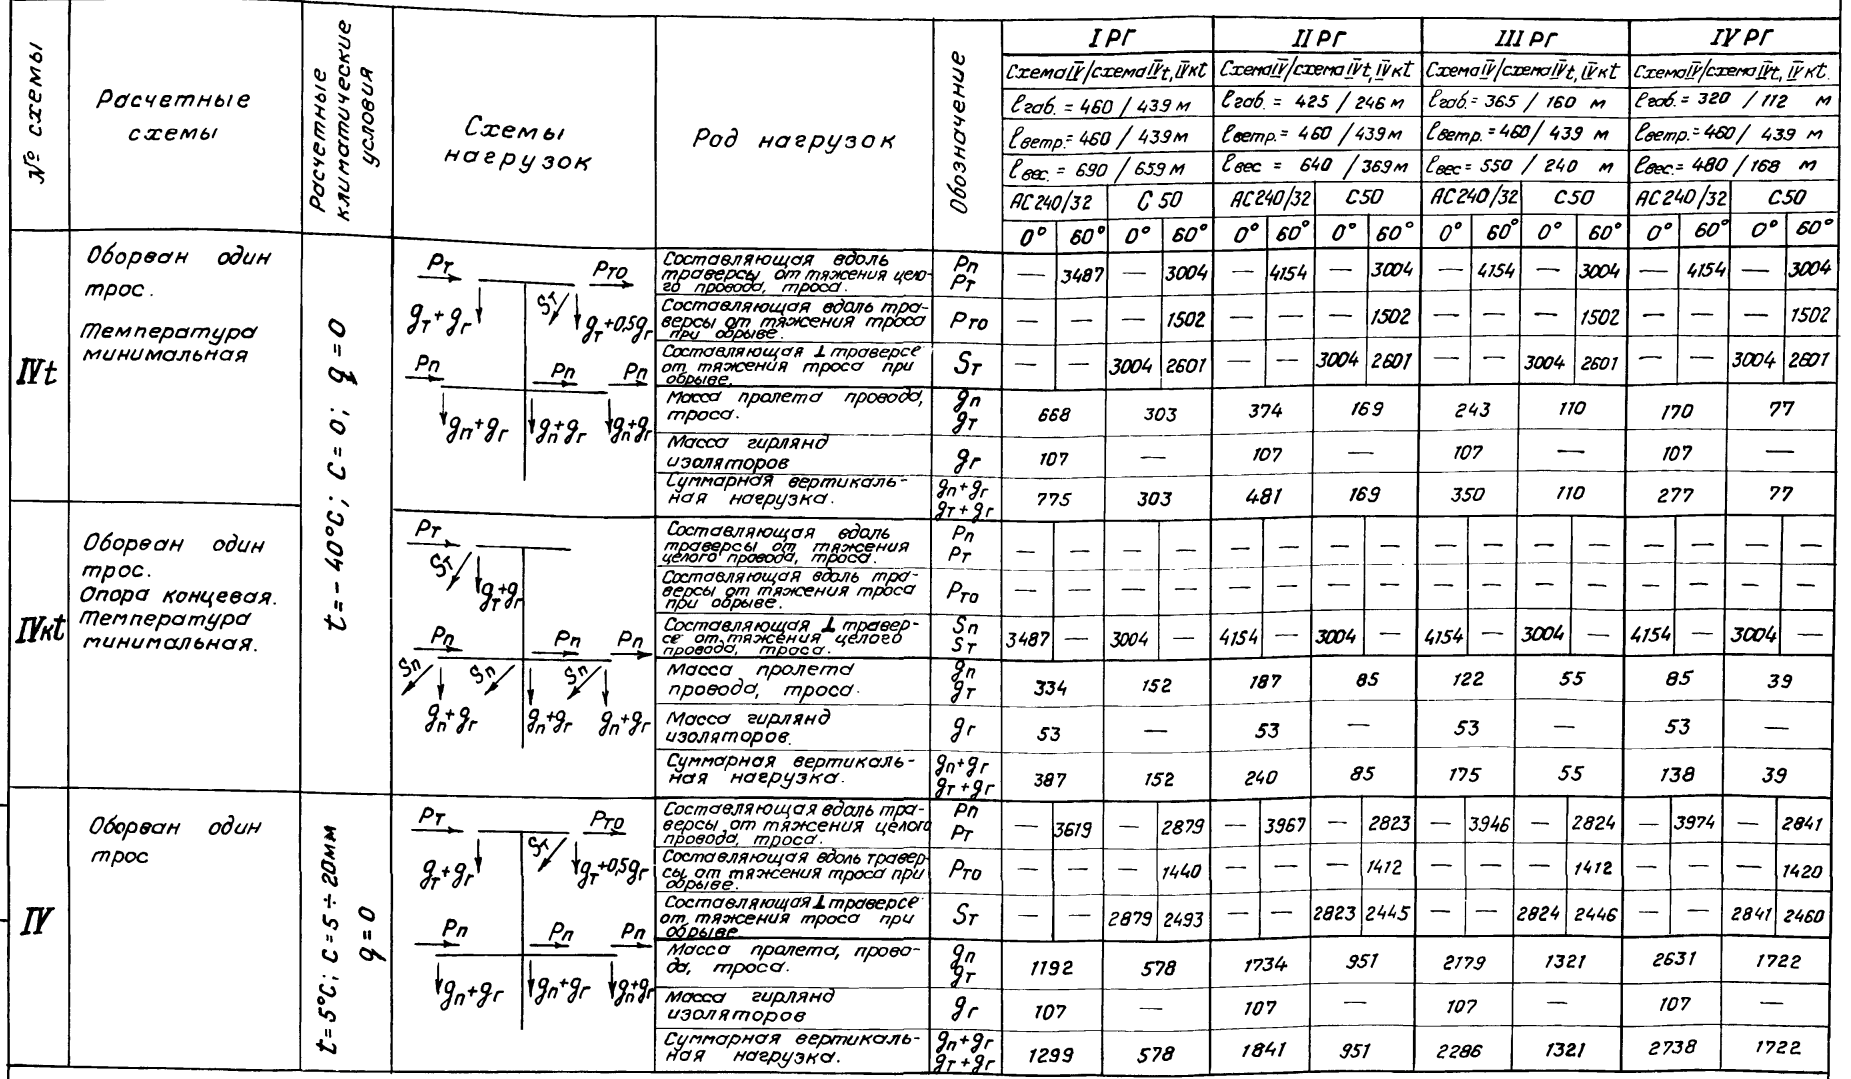 № схемы
Расчетные
схемы
Расчетные
климатические
условия
Схемы
нагрузок
Род нагрузок
Обозначение
I РГ II РГ III РГ IV РГ
Схема IV/схема IVt, IVкt Схема IV/схема IVt, IVкt Схема IV/схема IVt, IVкt Схема IV/схема IVt, IVкt.
ℓгаб. = 460 / 439 м ℓгаб. = 425 / 246 м ℓгаб. = 365 / 160 м ℓгаб. = 320 / 112 м
ℓветр. = 460 / 439 м ℓветр. = 460 / 439 м ℓветр. = 460 / 439 м ℓветр. = 460 / 439 м
ℓвес. = 690 / 659 м ℓвес = 640 / 369 м ℓвес = 550 / 240 м ℓвес. = 480 / 168 м
АС240/32 С 50 АС240/32 С50 АС240/32 С50 АС240/32 С50
0° 60° 0° 60° 0° 60° 0° 60° 0° 60° 0° 60° 0° 60° 0° 60°
IVt
Оборван один
трос.
Температура
минимальная
t = - 40°С; С = 0; q = 0
Pт Pто
Sт
gт + gг gт+0,5gг
Pп Pп Pп
gп+gг gп+gг gп+gг
Составляющая вдоль
траверсы от тяжения цело-
го провода, троса.
Pп
Pт
— 3487 — 3004 — 4154 — 3004 — 4154 — 3004 — 4154 — 3004
Составляющая вдоль тра-
версы от тяжения троса
при обрыве.
Pто
— — — 1502 — — — 1502 — — — 1502 — — — 1502
Составляющая ⊥ траверсе
от тяжения троса при
обрыве.
Sт
— — 3004 2601 — — 3004 2601 — — 3004 2601 — — 3004 2601
Масса пролета провода,
троса.
gп
gт
668 303 374 169 243 110 170 77
Масса гирлянд
изоляторов
gг
107 — 107 — 107 — 107 —
Суммарная вертикаль-
ная нагрузка.
gп+gг
gт+gг
775 303 481 169 350 110 277 77
IVкt
Оборван один
трос.
Опора концевая.
Температура
минимальная.
Pт
Sт
gт+gг
Pп Pп Pп
Sп Sп Sп
gп+gг gп+gг gп+gг
Составляющая вдоль
траверсы от тяжения
целого провода, троса.
Pп
Pт
— — — — — — — — — — — — — — — —
Составляющая вдоль тра-
версы от тяжения троса
при обрыве.
Pто
— — — — — — — — — — — — — — — —
Составляющая ⊥ травер-
се от тяжения целого
провода, троса.
Sп
Sт
3487 — 3004 — 4154 — 3004 — 4154 — 3004 — 4154 — 3004 —
Масса пролета
провода, троса.
gп
gт
334 152 187 85 122 55 85 39
Масса гирлянд
изоляторов.
gг
53 — 53 — 53 — 53 —
Суммарная вертикаль-
ная нагрузка.
gп+gг
gт+gг
387 152 240 85 175 55 138 39
IV
Оборван один
трос
t = 5°С; С = 5 ÷ 20мм
q = 0
Pт Pто
Sт
gт+gг gт+0,5gг
Pп Pп Pп
gп+gг gп+gг gп+gг
Составляющая вдоль тра-
версы от тяжения целого
провода, троса.
Pп
Pт
— 3619 — 2879 — 3967 — 2823 — 3946 — 2824 — 3974 — 2841
Составляющая вдоль травер-
сы от тяжения троса при
обрыве.
Pто
— — — 1440 — — — 1412 — — — 1412 — — — 1420
Составляющая ⊥ траверсе
от тяжения троса при
обрыве
Sт
— — 2879 2493 — — 2823 2445 — — 2824 2446 — — 2841 2460
Масса пролета, прово-
да, троса.
gп
gт
1192 578 1734 951 2179 1321 2631 1722
Масса гирлянд
изоляторов
gг
107 — 107 — 107 — 107 —
Суммарная вертикаль-
ная нагрузка.
gп+gг
gт+gг
1299 578 1841 951 2286 1321 2738 1722